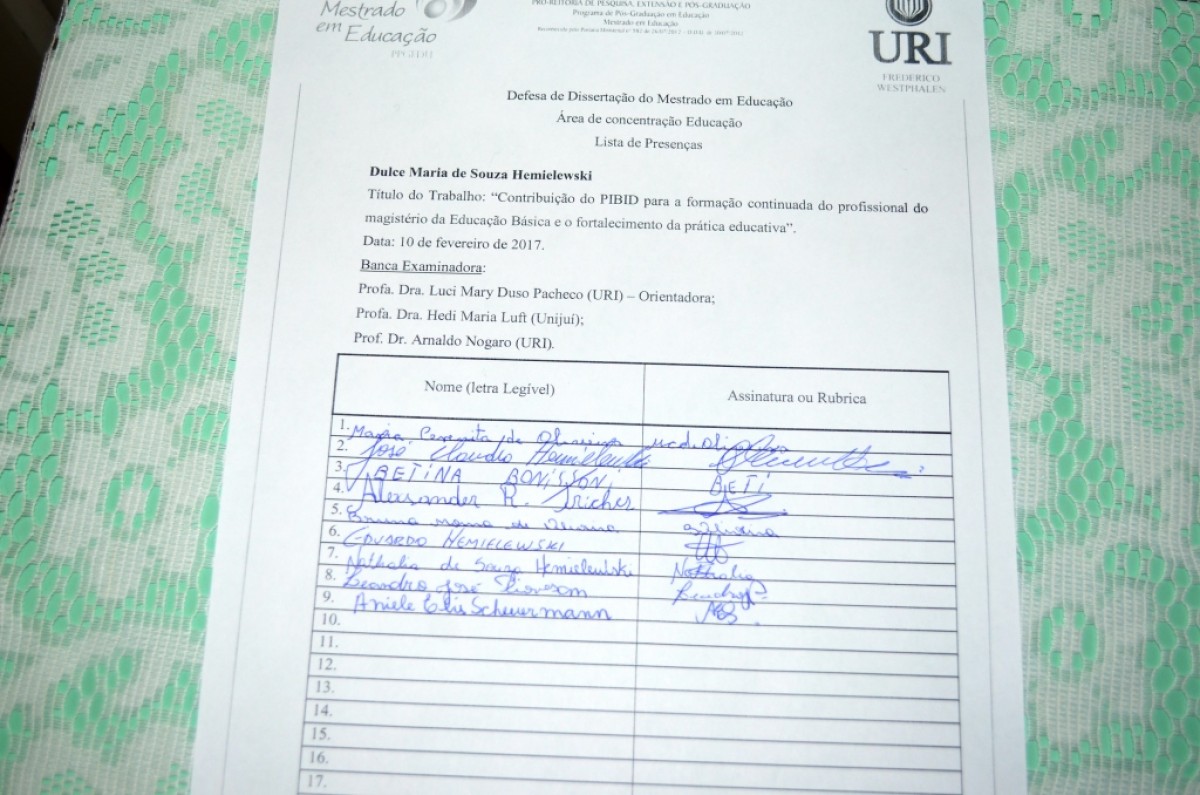 Mestrado
em Educação
PPGEDU
PRÓ-REITORIA DE PESQUISA, EXTENSÃO E PÓS-GRADUAÇÃO
Programa de Pós-Graduação em Educação
Mestrado em Educação
URI
FREDERICO
WESTPHALEN
Defesa de Dissertação do Mestrado em Educação
Área de concentração Educação
Lista de Presenças
Dulce Maria de Souza Hemielewski
Título do Trabalho: “Contribuição do PIBID para a formação continuada do profissional do
magistério da Educação Básica e o fortalecimento da prática educativa”.
Data: 10 de fevereiro de 2017.
Banca Examinadora:
Profa. Dra. Luci Mary Duso Pacheco (URI) – Orientadora;
Profa. Dra. Hedi Maria Luft (Unijuí);
Prof. Dr. Arnaldo Nogaro (URI).
Nome (letra Legível) Assinatura ou Rubrica
1. Maria de Oliveira
2. José Claudio Hemielewski
3. BETINA BONISSONI BETI
4. Alexsander R. Tricher
5. Bruna de
6. EDUARDO HEMIELEWSKI
7. Nathalia de Souza Hemielewski Nathalia
8. Leandro José Piovesan
9. Aniele Elis Scheuermann
10.
11.
12.
13.
14.
15.
16.
17.